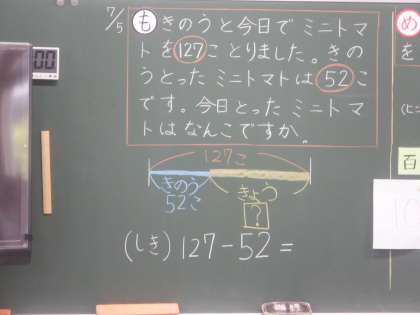 7/5
も きのうと今日でミニトマ
トを127ことりました。きの
うとったミニトマトは52こ
です。今日とったミニトマ
トはなんこですか。
127こ
きのう
52こ
きょう
?
(しき) 127-52=
め
を
百
00